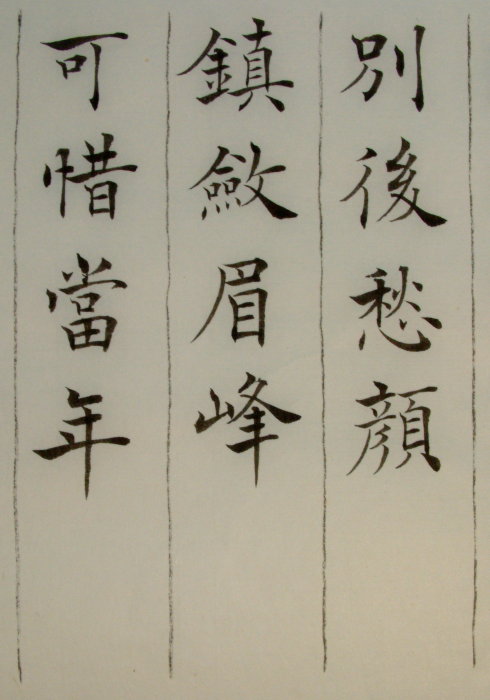 別後愁顏
鎮斂眉峰
可惜當年